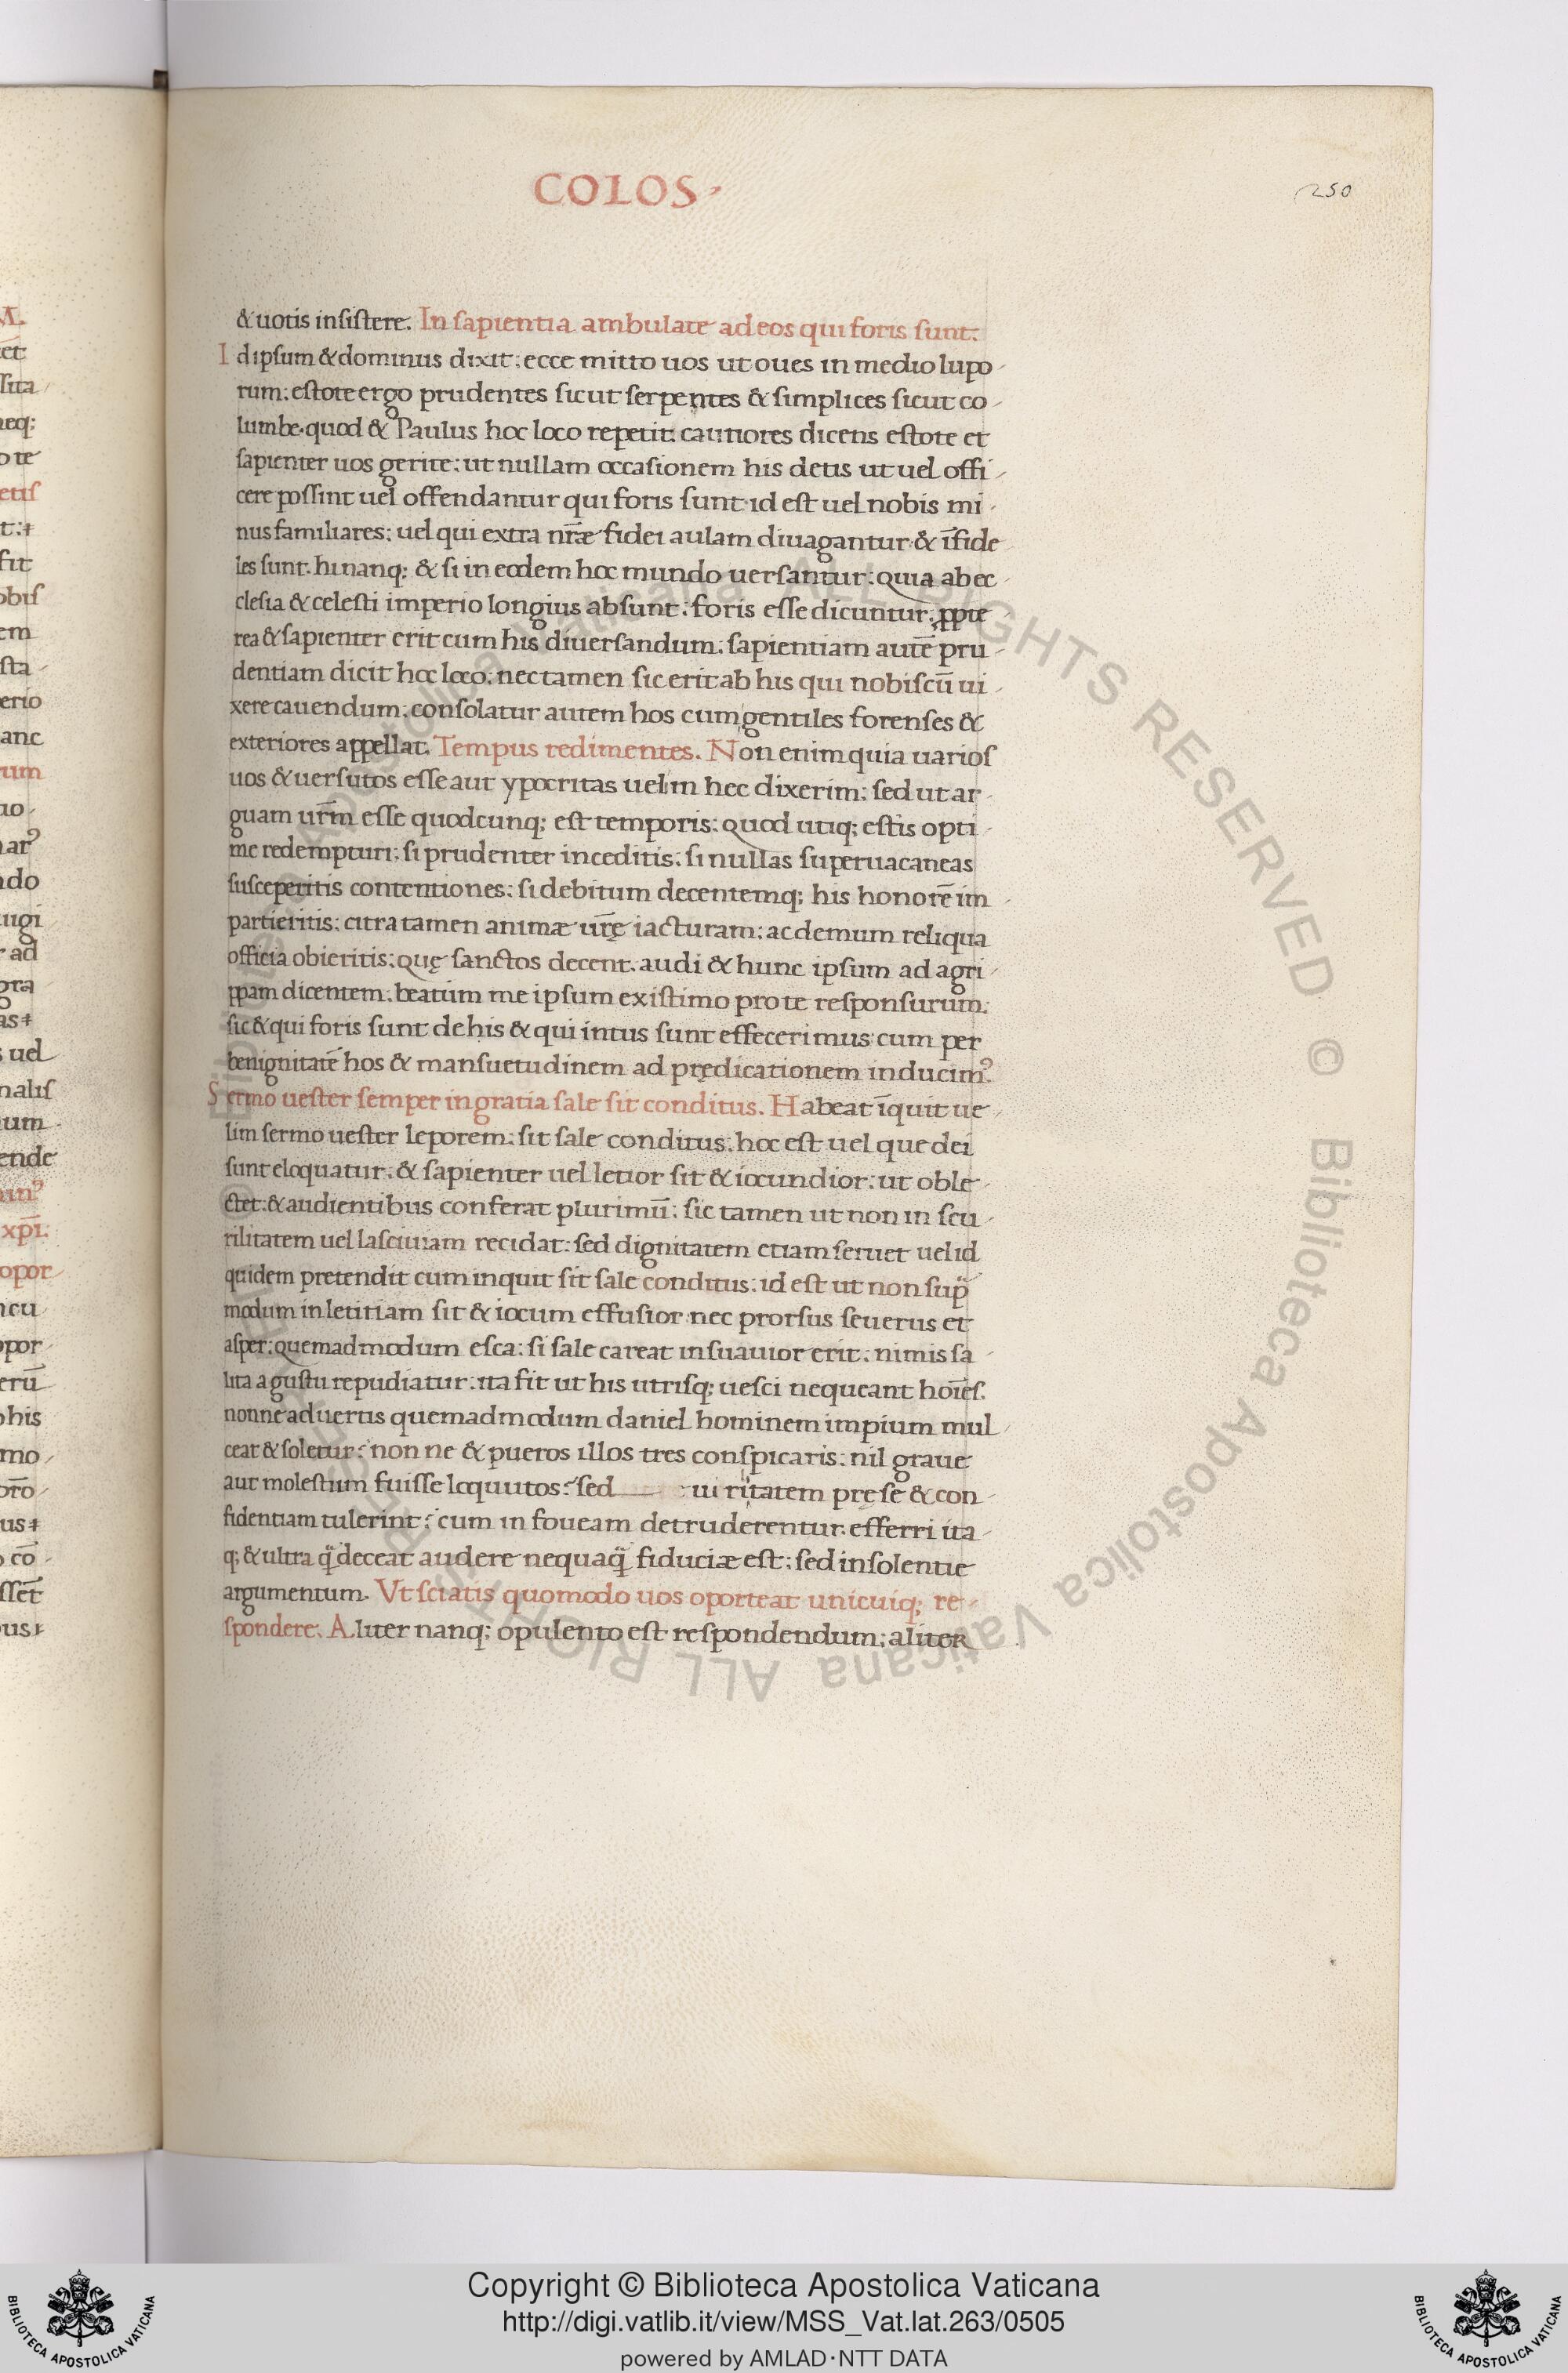 COLOS·
250
& uotis insistere. In sapientia ambulate ad eos qui foris sunt.
I dipsum & dominus dixit: ecce mitto uos ut oues in medio lupo-
rum: estote ergo prudentes sicut serpentes & simplices sicut co-
lumbe. quod & Paulus hoc loco repetit: cautiores dicens estote et
sapienter uos gerite: ut nullam occasionem his detis ut uel offi-
cere possint uel offendantur qui foris sunt. id est uel nobis mi-
nus familiares: uel qui extra nr̄æ fidei aulam diuagantur & īfide
les sunt. hi nanq; & si in eodem hoc mundo uersantur: quia ab ec-
clesia & celesti imperio longius absunt: foris esse dicuntur: ꝓpte
rea & sapienter erit cum his diuersandum: sapientiam autē pru-
dentiam dicit hoc loco: nec tamen sic erit ab his qui nobiscū ui-
xere cauendum: consolatur autem hos cum gentiles forenses &
exteriores appellat. Tempus redimentes. Non enim quia uarios
uos & uersutos esse aut ypocritas uelim hec dixerim: sed ut ar-
guam ur̄m esse quodcunq; est temporis: quod utiq; estis opti-
me redempturi: si prudenter inceditis: si nullas superuacaneas
susceperitis contentiones: si debitum decentemq; his honorē im-
partieritis: citra tamen animæ ur̄ę iacturam: ac demum reliqua
officia obieritis: quę sanctos decent. audi & hunc ipsum ad agri-
ppam dicentem: beatum me ipsum existimo pro te responsurum:
sic & qui foris sunt de his & qui intus sunt effecerimus: cum per
benignitatē hos & mansuetudinem ad prędicationem inducimꝰ.
S ermo uester semper in gratia sale sit conditus. Habeat īquit ue-
lim sermo uester leporem: sit sale conditus: hoc est uel que dei
sunt eloquatur: & sapienter uel letior sit & iocundior: ut oble-
ctet: & audientibus conferat plurimū: sic tamen ut non in scu-
rilitatem uel lasciuiam recidat: sed dignitatem etiam seruet uel id
quidem pretendit cum inquit sit sale conditus: id est ut non sup̄
modum in letitiam sit & iocum effusior nec prorsus seuerus et
asper: quemadmodum esca: si sale careat insuauior erit: nimis sa-
lita a gustu repudiatur: ita fit ut his utrisq; uesci nequeant hoīes.
nonne aduertis quemadmodum daniel hominem impium mul-
ceat & soletur? non ne & pueros illos tres conspicaris: nil graue
aut molestum fuisse loquutos? sed uiritatem pre se & con-
fidentiam tulerint? cum in foueam detruderentur. efferri ita-
q; & ultra q̄ deceat audere nequaq̄ fiduciæ est: sed insolentie
argumentum. Vt sciatis quomodo uos oporteat unicuiq; re-
spondere. Aliter nanq; opulento est respondendum: aliter
Copyright © Biblioteca Apostolica Vaticana
http://digi.vatlib.it/view/MSS_Vat.lat.263/0505
powered by AMLAD·NTT DATA